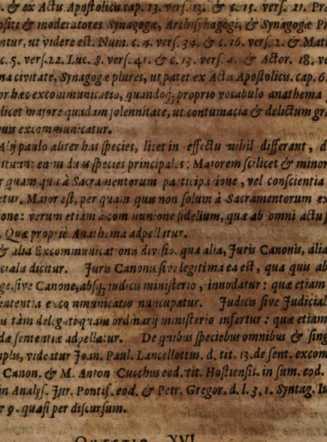 & ex Actu. Apostolic. cap. 13. vers. 15. & c. 15. vers. 21. Pr
positi & moderatores Synagogæ, Archisynagogi, & Synagogæ P
ntur, ut videre est. Num. c. 4. vers. 34. & c. 16. vers. 2. & Mat
c. 5. vers. 22. Luc. 8. vers. 41. & c. 13. vers. 4. & Actor. 18. ve
ma civitate, Synagogæ plures, ut patet ex Acta Apostolic. cap. 6.
or hæc excommunicatio, quandoq; proprio vocabulo anathema
licet majore quadam solennitate, ut contumacia & delictum gr
nus excommunicatur.
paulo aliter has species, licet in effectu nihil differant, d
enim duæ species principales: Majorem scilicet & minor
r quam quis à Sacramentorum participatione, vel conscientia
etur. Major est, per quam quis non solùm à Sacramentorum ex
one: verum etiam à communione fidelium, quæ ab omni actu
. Quæ propriè Anathema appellitur.
& alia Excommunicationis divisio, qua alia, Juris Canonis, alia
ciala dicitur. Juris Canonis sive legitima ea est, qua quis ab
ge, sive Canone, absq; judicis ministerio, innodatur: quæ etiam
sententia excommunicatio nuncupatur. Judicis sive Judicial
us tàm delegati quàm ordinarii ministerio infertur: quæ etiam
da sententia appellatur. De quibus speciebus omnibus & sing
mplis, videatur Joan. Paul. Lancellottus. d. tit. 13. de sent. excom
Canon. & M. Anton Cucchus eod. tit. Hostiensis. in sum. eod.
in Analys. Jur. Pontif. eod. & Petr. Gregor. d. l. 3. t. Syntag. Ju
r 9. quasi per discursum.
XVI.